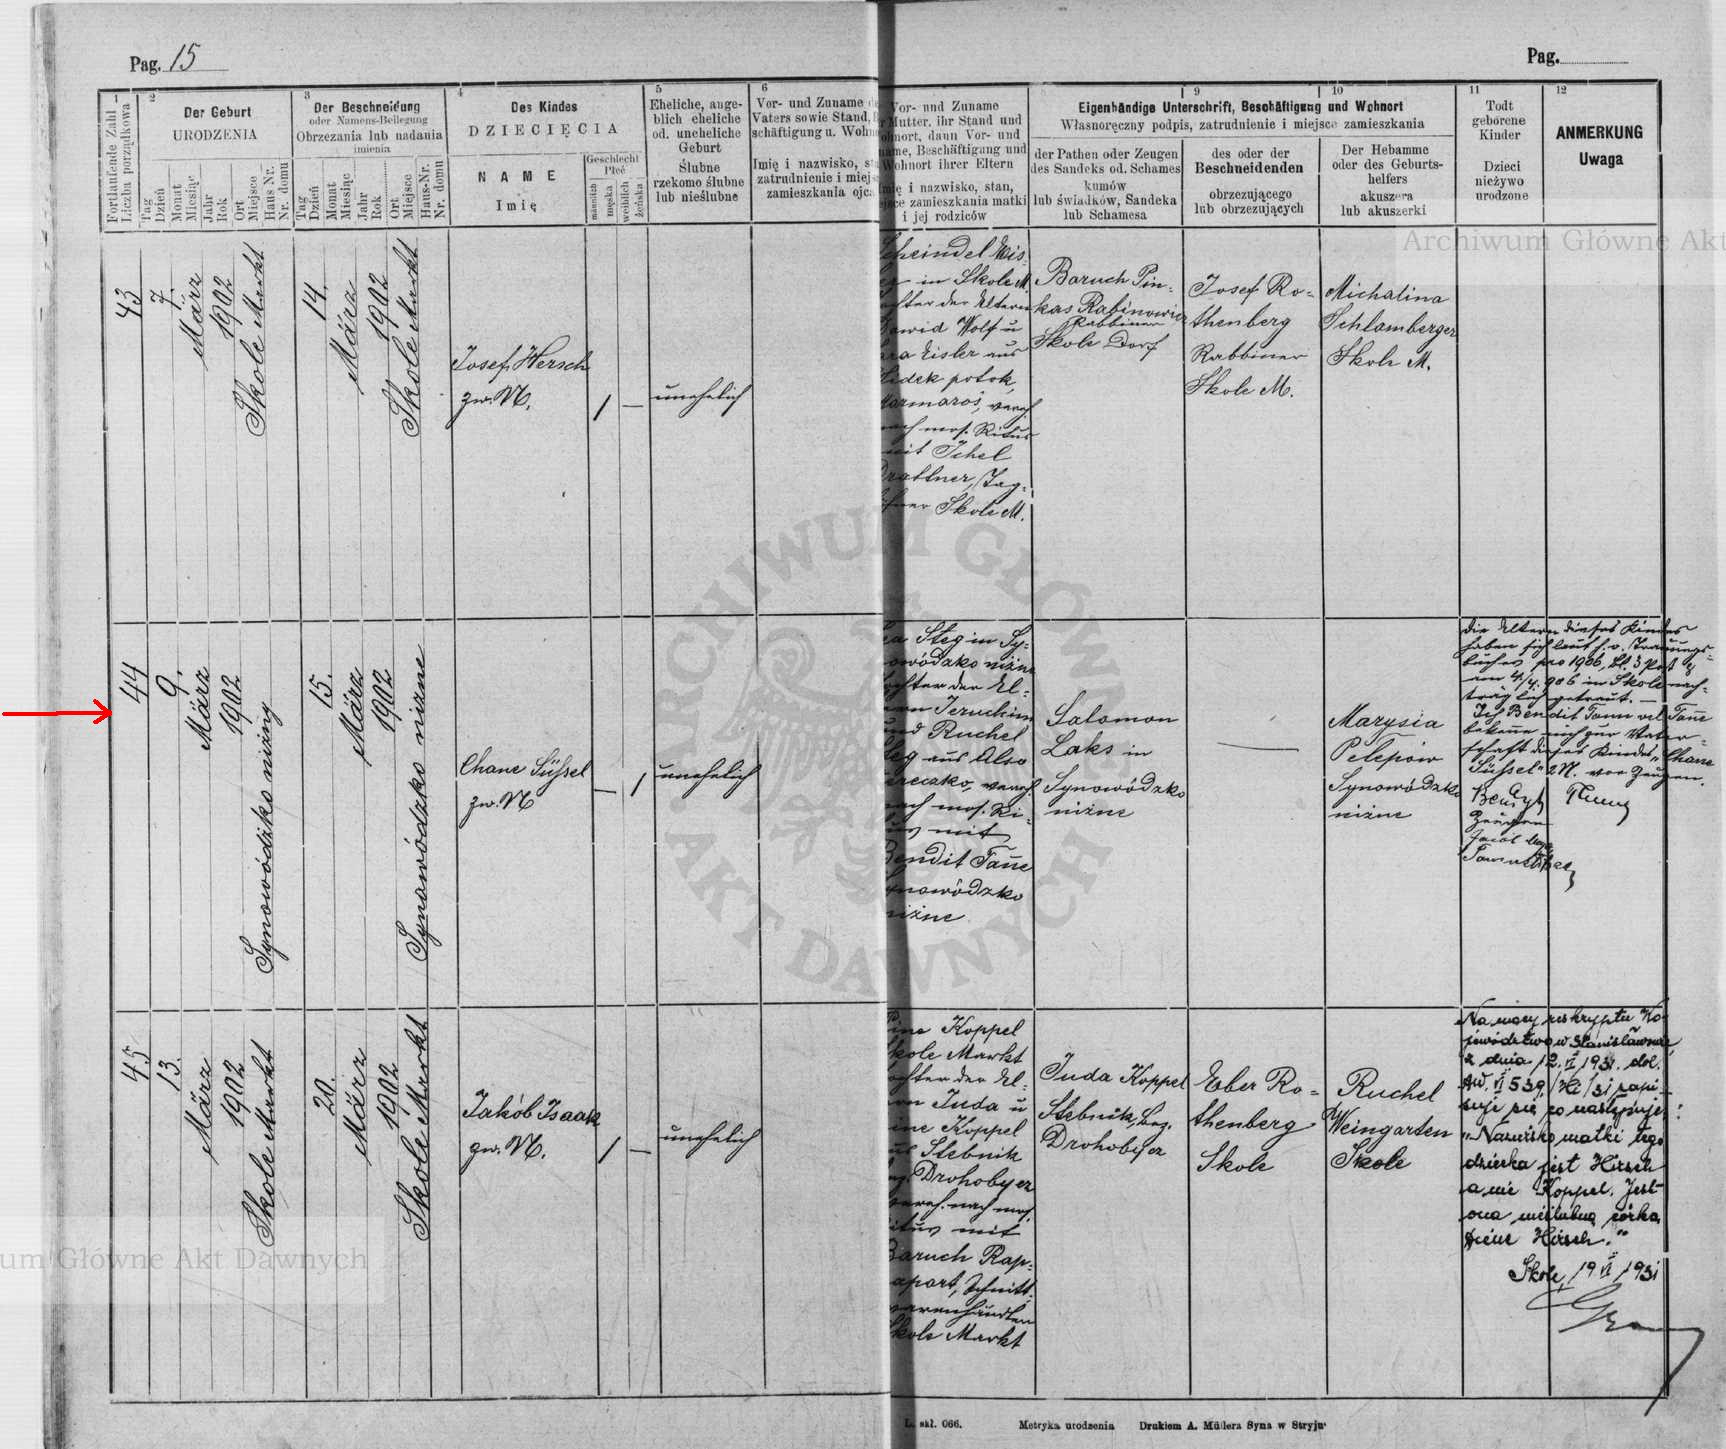 Pag. 15
Pag.
1
Fortlaufende Zahl
Liczba porządkowa
2
Der Geburt
URODZENIA
Tag
Dzień
Monat
Miesiąc
Jahr
Rok
Ort
Miejsce
Haus Nr.
Nr. domu
3
Der Beschneidung
oder Namens-Beilegung
Obrzezania lub nadania
imienia
Tag
Dzień
Monat
Miesiąc
Jahr
Rok
Ort
Miejsce
Haus-Nr.
Nr. domu
4
Des Kindes
DZIECIĘCIA
NAME
Imię
Geschlecht
Płeć
männlich
męska
weiblich
żeńska
5
Eheliche, ange-
blich eheliche
od. uneheliche
Geburt
Ślubne
rzekomo ślubne
lub nieślubne
6
Vor- und Zuname
Vaters sowie Stand,
schäftigung u. Wohn
Imię i nazwisko,
zatrudnienie i miej
zamieszkania ojca
Vor- und Zuname
Mutter, ihr Stand und
ohnort, dann Vor- und
ame, Beschäftigung und
Wohnort ihrer Eltern
i nazwisko, stan,
zamieszkania matki
i jej rodziców
9
10
Eigenhändige Unterschrift, Beschäftigung und Wohnort
Własnoręczny podpis, zatrudnienie i miejsce zamieszkania
der Pathen oder Zeugen
des Sandeks od. Schames
kumów
lub świadków, Sandeka
lub Schamesa
des oder der
Beschneidenden
obrzezującego
lub obrzezujących
Der Hebamme
oder des Geburts-
helfers
akuszera
lub akuszerki
11
Todt
geborene
Kinder
Dzieci
nieżywo
urodzone
12
ANMERKUNG
Uwaga
Archiwum Główne Akt
43
7.
März
1902
Skole Markt
14.
März
1902
Skole Markt
Josef Hersch
zw. N.
/ —
unehelich
Scheindel Eis-
in Skole M.
der Eltern
Dawid Wolf u
Eisler aus
potok,
Marmaroś, vereh.
nach mos. Ritus
mit Ichel
Drattner, Tag-
Skole M.
Baruch Pin-
kas Rabinowicz
Rabbiner
Skole Dorf
Josef Ro-
thenberg
Rabbiner
Skole M.
Michalina
Schlamberger
Skole M.
44
9.
März
1902
Synowódzko niżny
15.
März
1902
Synowódzko niżne
Chane Süssel
zw. N
— /
unehelich
Steg in Sy-
nowódzko niżne
der El-
tern Jeruchim
und Ruchel
Steg aus Also
vereh.
nach mos. Ri-
tus mit
Bendit Tanne
Synowódzko
niżne
Salomon
Laks in
Synowódzko
niżne
—
Marysia
Pelepiów
Synowódzko
niżne
Die Eltern dieses Kindes
haben sich laut h. o. Trauungs-
buches pro 1906, Bl. 3 Post 9
am 4/4. 906 in Skole nach-
träglich getraut. —
Ich Bendit Tann vel Tanne
bekenne mich zur Vater-
schaft dieses Kindes „Chane
Süssel" z. N. vor Zeugen.
Zeugen
45
13.
März
1902
Skole Markt
20.
März
1902
Skole Markt
Jakób Isaak
zw. N.
/ —
unehelich
Koppel
Skole Markt
Tochter der El-
tern Juda u
Koppel
aus Stebnik
Drohobycz
vereh. nach mos.
Ritus mit
Baruch Rap-
aport, Schnitt-
warenhändler
Skole Markt
Juda Koppel
Stebnik, Bez.
Drohobycz
Eber Ro-
thenberg
Skole
Ruchel
Weingarten
Skole
Na mocy reskryptu Wo-
jewództwa w Stanisławowie
z dnia 12.VI 1931. dol.
AW. VI 539/ /31 zapi-
suje się co następuje:
„Nazwisko matki tego
dziecka jest Hirsch
a nie Koppel. Jest
ona nieślubną córką
Hirsch."
Skole, 19 VI 1931
ARCHIWUM GŁÓWNE
AKT DAWNYCH
um Główne Akt Dawnych
L. skł. 066.
Metryka urodzenia
Drukiem A. Müllera Syna w Stryju